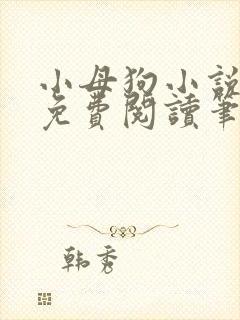 小母狗小說
免費閱讀筆
韩秀